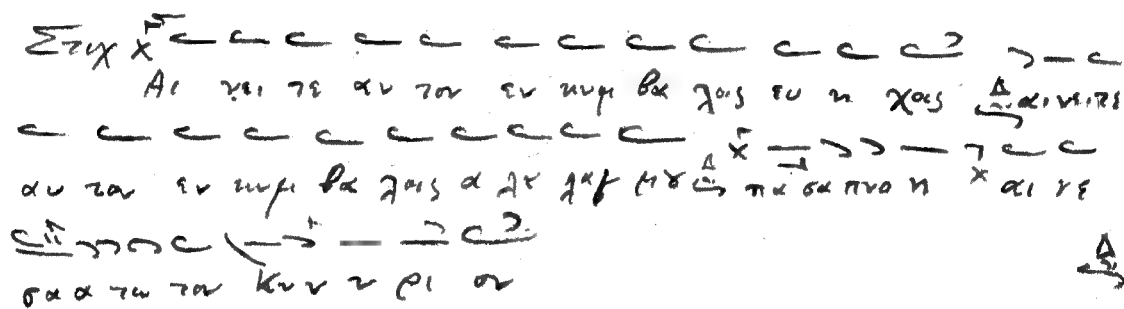 Στιχ
Αι νει τε αυ τον εν κυμ βα λοις ευ η χοις αι νει τε
αυ τον εν κυμ βα λοις α λα λαγ μου πα σα πνο η αι νε
σα α τω τον Κυ υ υ ρι ον